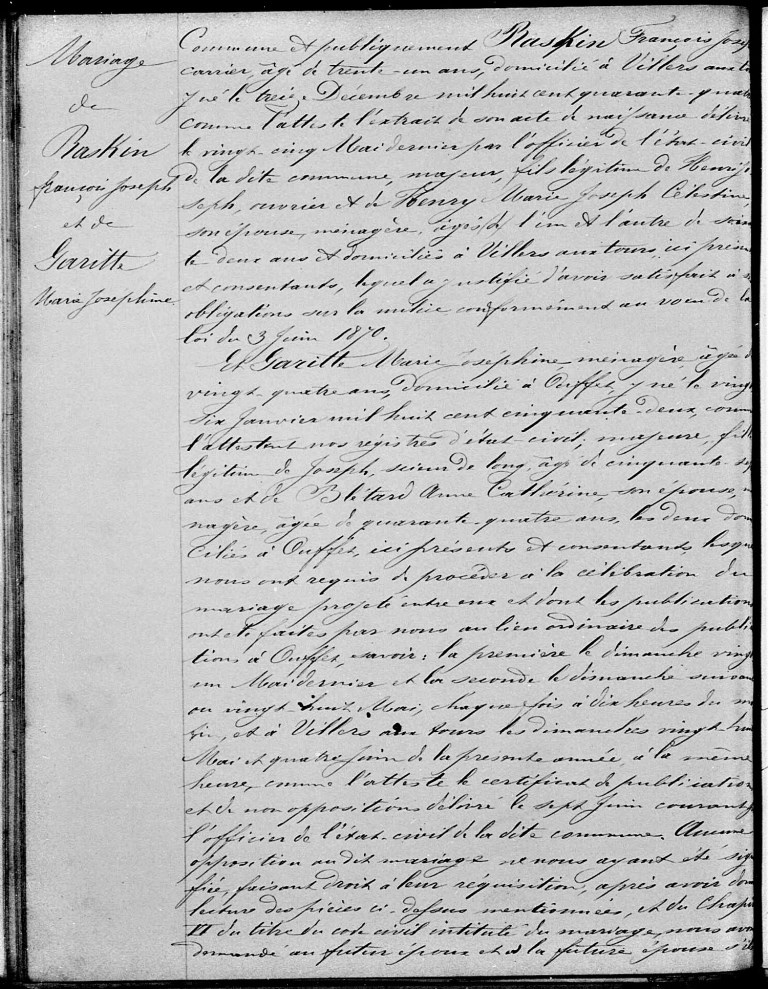 Mariage
de
Raskin
françois Joseph
et de
Garitte
Marie Josephine
Commune et publiquement Raskin François Josep
carrier, âgé de trente-un ans, domicilié à Villers aux to
y né le treize Décembre mil huit cent quarante-quatre
comme l'atteste l'extrait de son acte de naissance délivré
le vingt cinq Mai dernier par l'officier de l'état-civil
de la dite commune, majeur, fils légitime de Henri Jo
seph, ouvrier et de Henry Marie Joseph Célestine,
son épouse, ménagère, âgés l'un et l'autre de soixan
te deux ans et domiciliés à Villers aux tours, ici présen
et consentants, lequel a justifié d'avoir satisfait à s
obligations sur la milice conformément au vœu de la
loi du 3 Juin 1870.
Et Garitte Marie Josephine, ménagère, âgée d
vingt-quatre ans, domicilié à Ouffet, y né le vingt
six Janvier mil huit cent cinquante-deux, comm
l'attestent nos registres d'état civil, majeure, fill
légitime de Joseph, scieur de long, âgé de cinquante-sep
ans et de Blétard Anne Cathérine, son épouse, m
nagère, âgée de quarante-quatre ans, les deux dom
ciliés à Ouffet, ici présents et consentants, lesque
nous ont requis de procéder à la célébration du
mariage projeté entre eux et dont les publications
ont été faites par nous au lieu ordinaire des public
tions à Ouffet, savoir: la première le dimanche vingt
un Mai dernier et la seconde le dimanche suivan
ou vingt huit Mai, chaque fois à dix heures du ma
tin, et à Villers aux tours les dimanches vingt-huit
Mai et quatre Juin de la présente année, à la même
heure, comme l'atteste le certificat de publication
et de non oppositions délivré le sept Juin courant p
l'officier de l'état-civil de la dite commune. Aucune
opposition au dit mariage ne nous ayant été sign
fiée, faisant droit à leur réquisition, après avoir don
lecture des pièces ci-dessus mentionnées, et du Chapi
VI du titre du code civil intitulé du mariage, nous avon
demandé au futur époux et à la future épouse s'ils